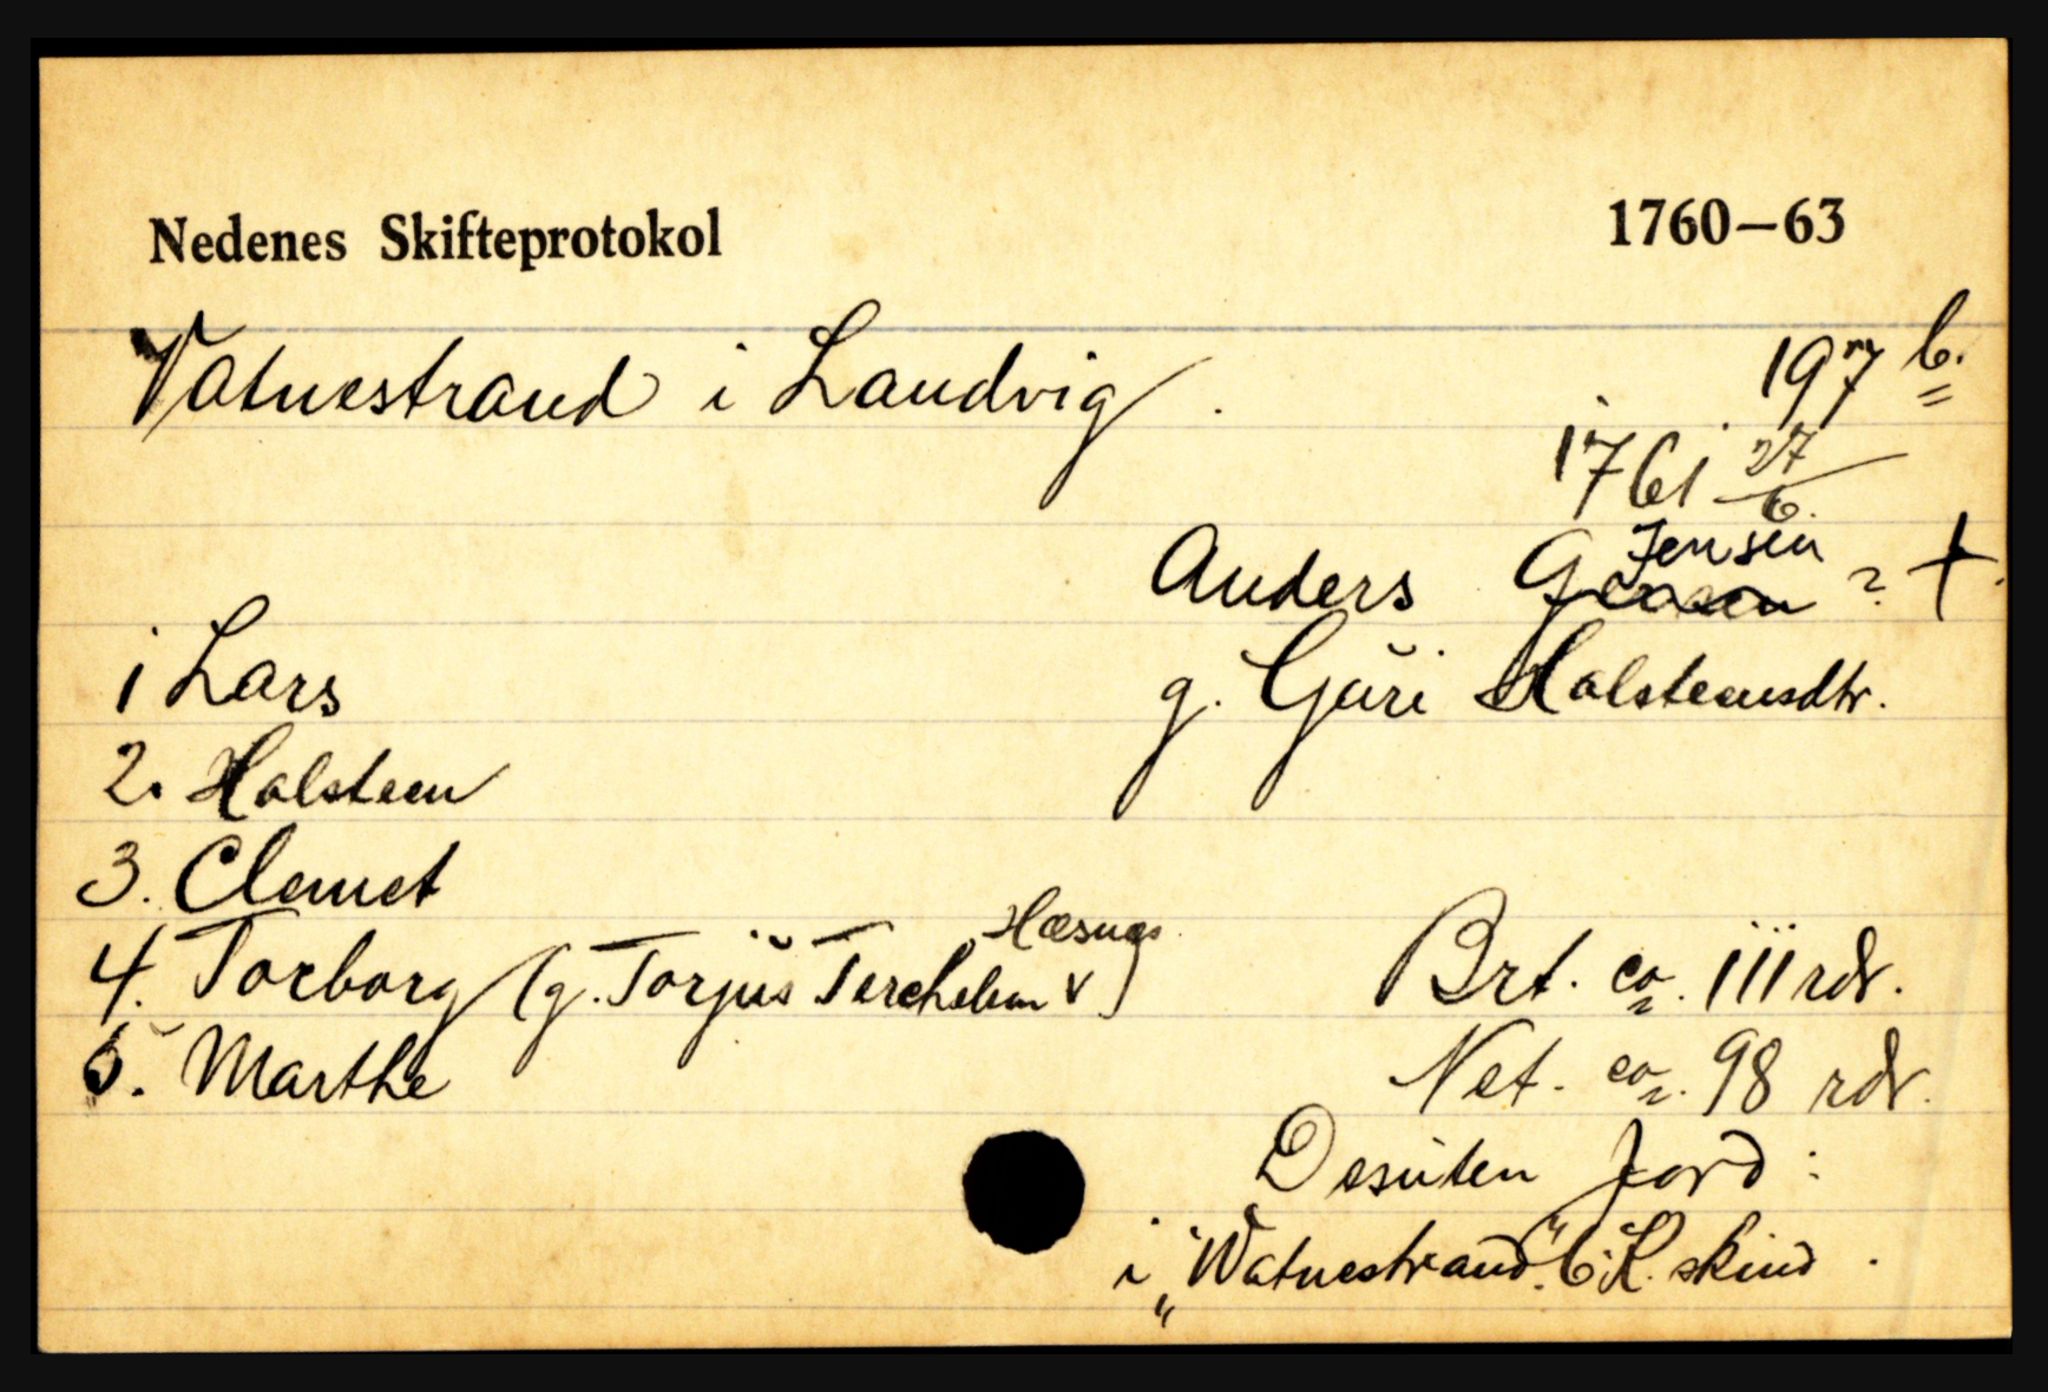 Nedenes Skifteprotokol 1760–63
Vatnestrand i Landvig.
197 b.
1761 27/6.
Anders Jensen ? +.
g. Guri Halsteensdtr.
1 Lars
2. Halsteen
3. Clemet
4. Torborg (g. Torjus Terchelsen Hæsnæs)
5. Marthe
Brt. ca. 111 rdr.
Net. ca. 98 rdr.
Desuten Jord:
i „Watnestrand“. 6 K. skind.